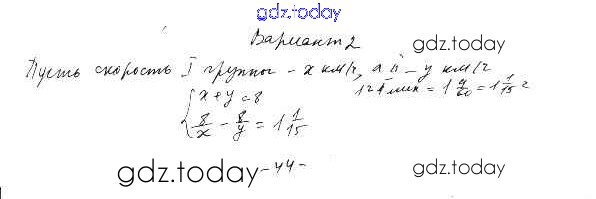 gdz.today
Вариант 2
gdz.today
Пусть скорость I группы - x км/ч, а II - y км/ч
124 мин = 1 4/60 = 1 1/15 ч
{ x + y = 8
8/x - 8/y = 1 1/15
gdz.today
-44-
gdz.today